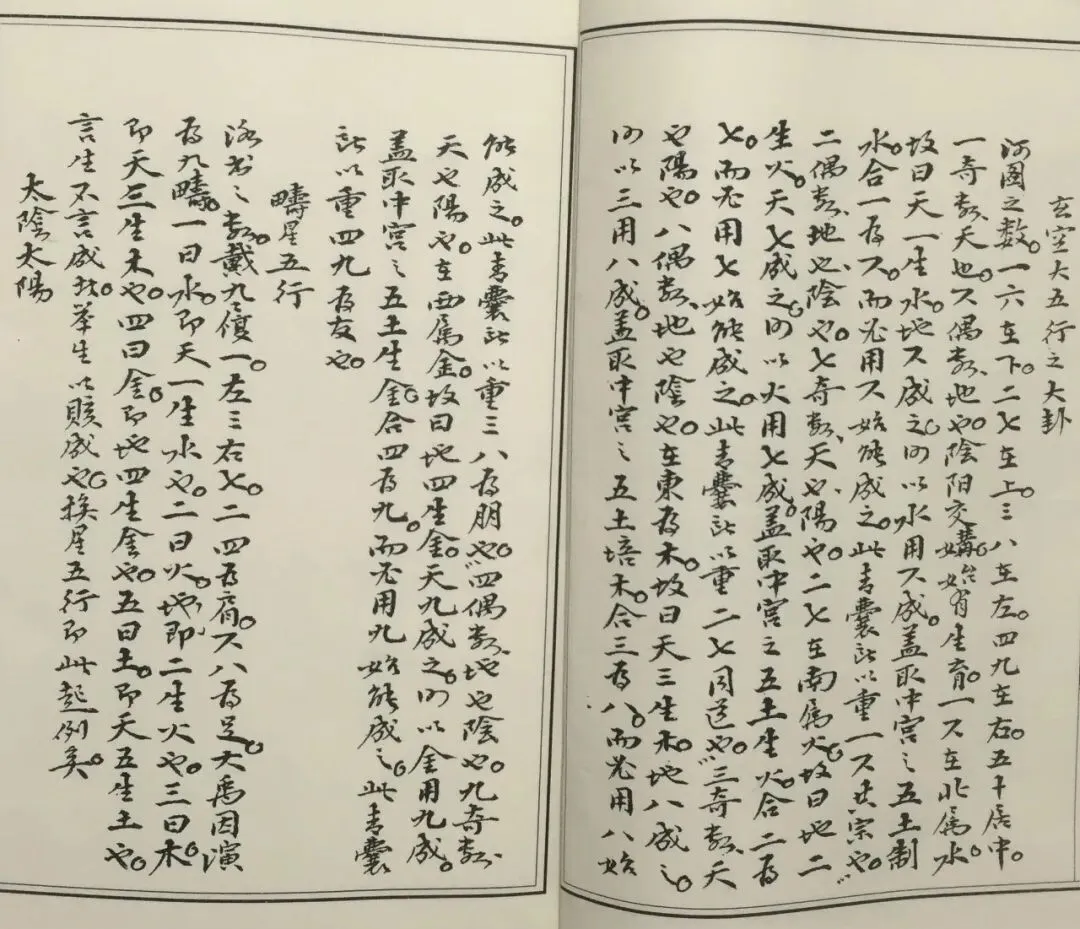 玄空大五行之大卦
河圖之数。一六在下。二七在上。三八在左。四九在右。五十居中。
一奇数、天也。六偶数、地也。陰阳交媾。始有生育。一六在北属水。
故曰天一生水。地六成之。所以水用六成。盖取中宫之五土制
水。合一为六。而必用六始能成之。此青囊所以重一六共宗也。
二偶数、地也、陰也。七奇数、天也、陽也。二七在南属火。故曰地二
生火。天七成之。所以火用七成。盖取中宫之五土生火。合二为
七。而必用七始能成之。此青囊所以重二七同道也。三奇数、天
也陽也。八偶数、地也陰也。在東为木。故曰天三生木。地八成之。
所以三用八成。盖取中宫之五土培木。合三为八。而必用八始
能成之。此青囊所以重三八为朋也。四偶数、地也陰也。九奇数、
天也陽也。在西属金。故曰地四生金。天九成之。所以金用九成。
盖取中宫之五土生金。合四为九。而必用九始能成之。此青囊
所以重四九为友也。
疇星五行
洛书之数。戴九履一。左三右七。二四为肩。六八为足。大禹因演
为九疇。一曰水。即天一生水也。二曰火。地即二生火也。三曰木。
即天三生木也。四曰金。即地四生金也。五曰土。即天五生土也。
言生不言成者。举生以賅成也。挨星五行即此起例矣。
太陰太陽